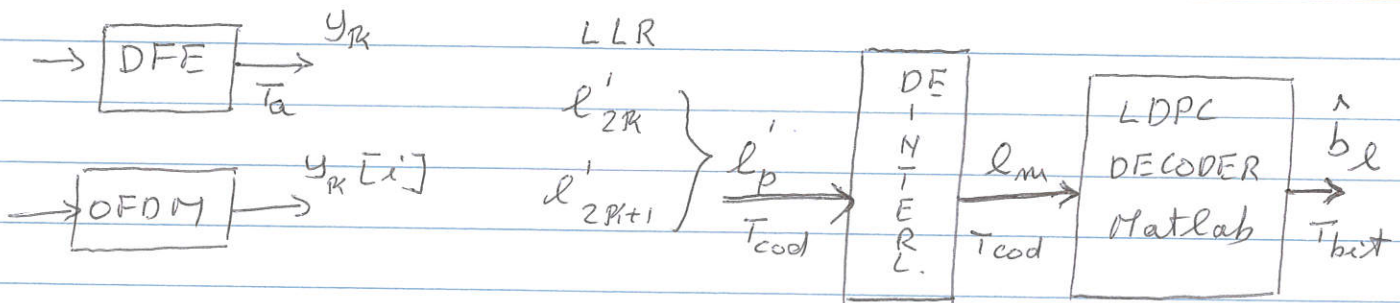 DFE
y_k
T_a
OFDM
y_k [i]
LLR
l'_{2k}
l'_{2k+1}
l'_p
T_cod
DE
INTERL.
l_m
T_cod
LDPC
DECODER
Matlab
b̂_l
T_bit